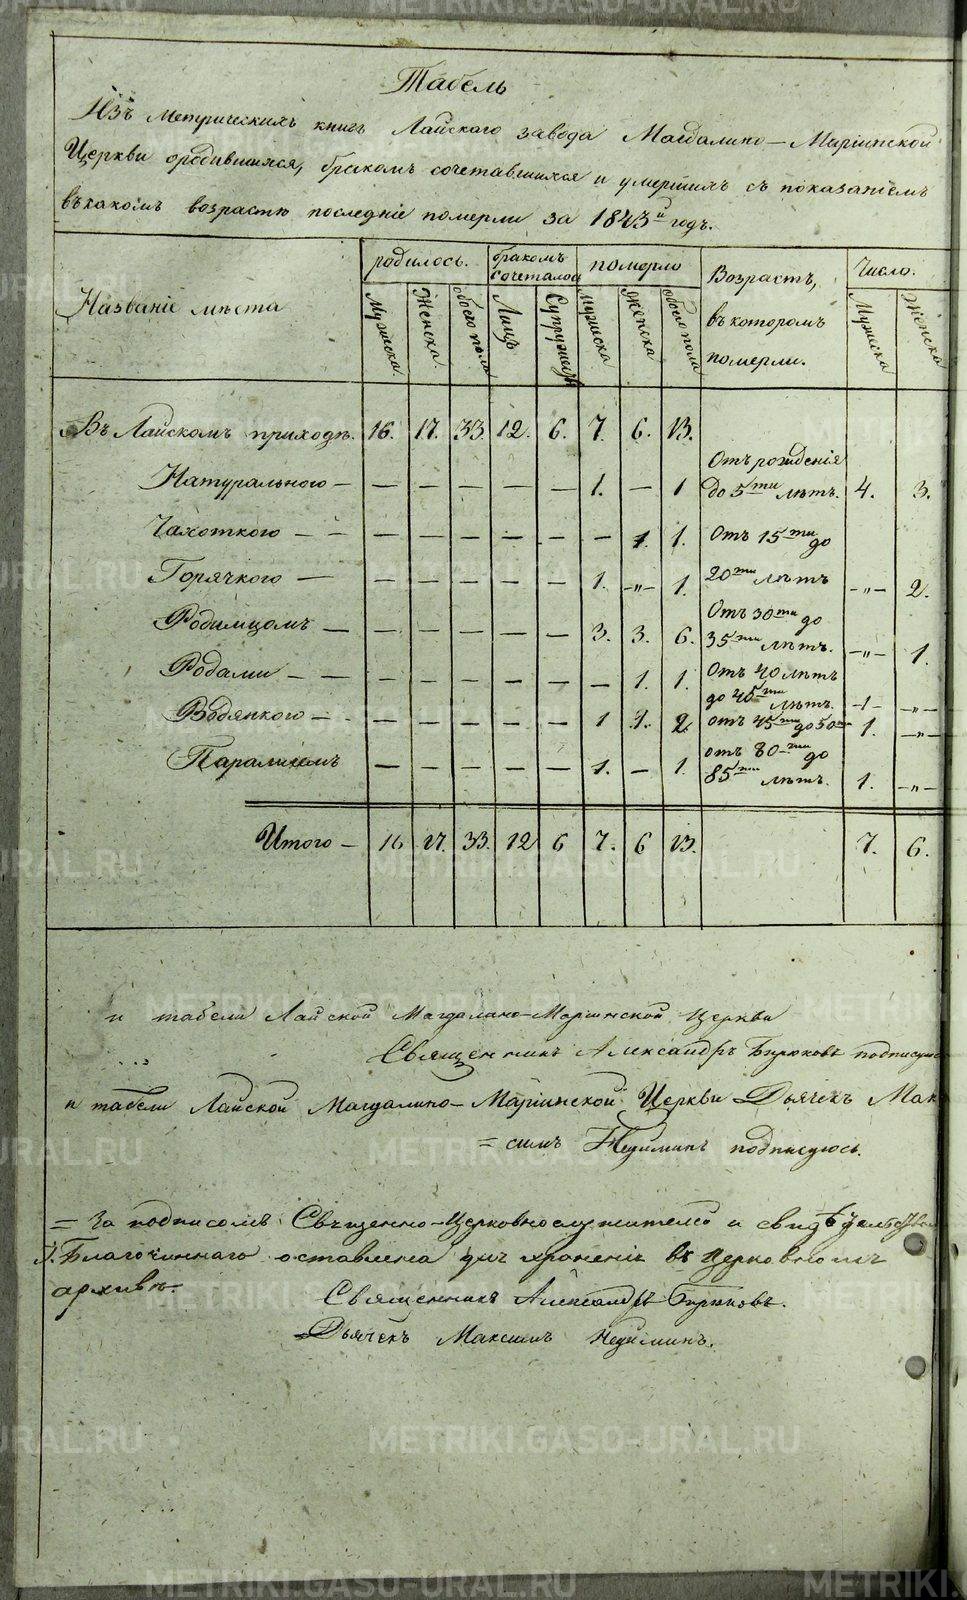 Табель
Изъ Метрическихъ книгъ Лайскаго завода Магдалино-Маріинской
Церкви ородившихся, бракомъ сочетавшихся и умершихъ съ показаніемъ
въкакомъ возрастѣ последніе померли за 1843й годъ.
Названіе мѣста
родилось.
бракомъ сочеталось
померло
Возрастъ, въ которомъ померли.
Число.
Мужеска. Женска. обоего пола Лицъ Супружествъ Мужеска Женска обоего пола Мужеска Женска
Въ Лайскомъ приходѣ. 16. 17. 33. 12. 6. 7. 6. 13.
Натурального — — — — — — 1. — 1 Отъ рожденія до 5ти лѣтъ. 4. 3.
Чахоткого — — — — — — — 1. 1. Отъ 15ти до
Горячкого — — — — — — 1. -„- 1. 20ти лѣтъ -„- 2.
Родимцомъ — — — — — — 3. 3. 6. Отъ 30ти до 35ти лѣтъ. -„- 1.
Родами — — — — — — — 1. 1. Отъ 40 лѣтъ до 45ти лѣтъ. -1- -„-
Водянкого — — — — — — 1 1. 2. отъ 45ти до 50ти 1. -„-
Параличемъ — — — — — 1. — 1. отъ 80ти до 85ти лѣтъ. 1. -„-
Итого — 16 17. 33. 12 6 7. 6 13. 7. 6.
и табели Лайской Магдалино-Маріинской Церкви
Священникъ Александръ Бирюковъ подписуюсь
и табели Лайской Магдалино-Маріинской Церкви Дьячекъ Мак
=симъ Недиминъ подписуюсь.
= За подписомъ Священно-Церковнослужителей и свид
Благочиннаго оставлена для храненія въ Церковномъ
архивѣ.
Священникъ Александръ Бирюковъ.
Дьячекъ Максимъ Недиминъ.
METRIKI.GASO-URAL.RU